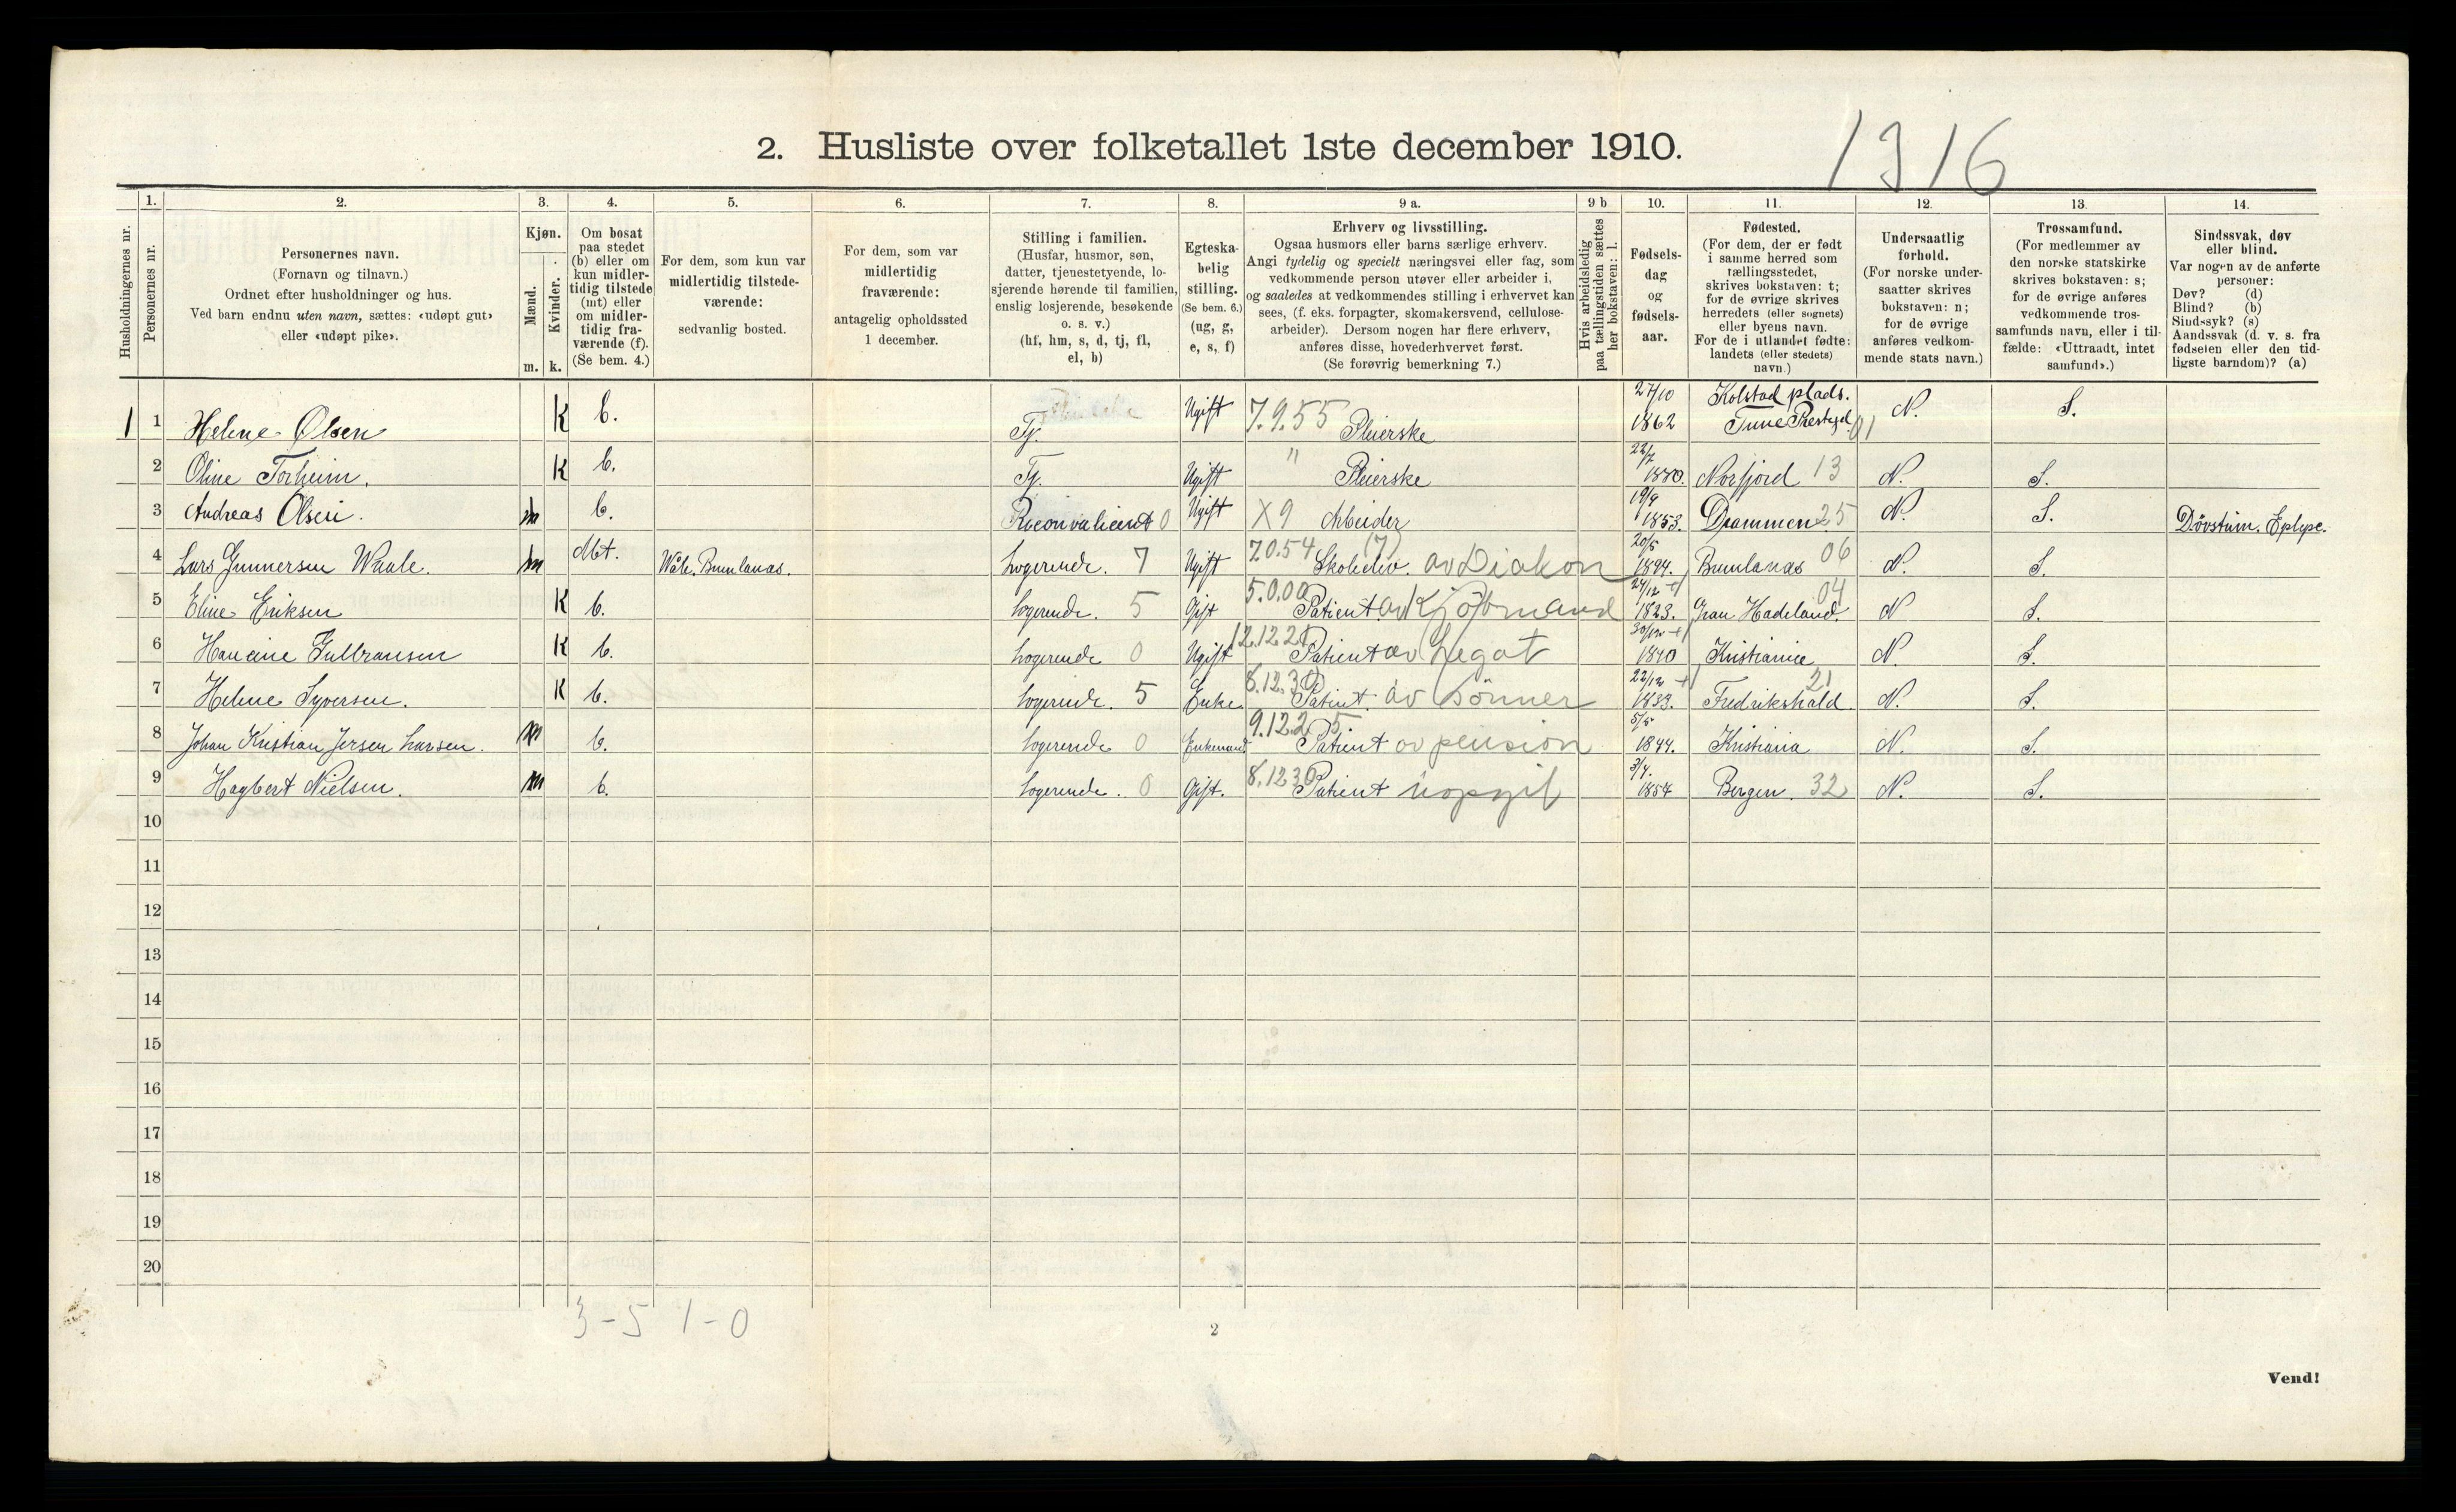 1316
2. Husliste over folketallet 1ste december 1910.
Husholdningernes nr.
1.
Personernes nr.
2.
Personernes navn.
(Fornavn og tilnavn.)
Ordnet efter husholdninger og hus.
Ved barn endnu uten navn, sættes: «udøpt gut»
eller «udøpt pike».
3.
Kjøn.
Mænd.
Kvinder.
m. k.
4.
Om bosat
paa stedet
(b) eller om
kun midler-
tidig tilstede
(mt) eller
om midler-
tidig fra-
værende (f).
(Se bem. 4.)
5.
For dem, som kun var
midlertidig tilstede-
værende:
sedvanlig bosted.
6.
For dem, som var
midlertidig
fraværende:
antagelig opholdssted
1 december.
7.
Stilling i familien.
(Husfar, husmor, søn,
datter, tjenestetyende, lo-
sjerende hørende til familien,
enslig losjerende, besøkende
o. s. v.)
(hf, hm, s, d, tj, fl,
el, b)
8.
Egteska-
belig
stilling.
(Se bem. 6.)
(ug, g,
e, s, f)
9 a.
Erhverv og livsstilling.
Ogsaa husmors eller barns særlige erhverv.
Angi tydelig og specielt næringsvei eller fag, som
vedkommende person utøver eller arbeider i,
og saaledes at vedkommendes stilling i erhvervet kan
sees, (f. eks. forpagter, skomakersvend, cellulose-
arbeider). Dersom nogen har flere erhverv,
anføres disse, hovederhvervet først.
(Se forøvrig bemerkning 7.)
9 b
Hvis arbeidsledig
paa tællingstiden sættes
her bokstaven: l.
10.
Fødsels-
dag
og
fødsels-
aar.
11.
Fødested.
(For dem, der er født
i samme herred som
tællingsstedet,
skrives bokstaven: t;
for de øvrige skrives
herredets (eller sognets)
eller byens navn.
For de i utlandet fødte:
landets (eller stedets)
navn.)
12.
Undersaatlig
forhold.
(For norske under-
saatter skrives
bokstaven: n;
for de øvrige
anføres vedkom-
mende stats navn.)
13.
Trossamfund.
(For medlemmer av
den norske statskirke
skrives bokstaven: s;
for de øvrige anføres
vedkommende tros-
samfunds navn, eller i til-
fælde: «Uttraadt, intet
samfund».)
14.
Sindssvak, døv
eller blind.
Var nogen av de anførte
personer:
Døv? (d)
Blind? (b)
Sindssyk? (s)
Aandssvak (d. v. s. fra
fødselen eller den tid-
ligste barndom)? (a)
1 1 Helene Olsen K b. Tj. Ugift 7.9.55 Pleierske 27/10 1862 Kolstad plads. Tune Prestegd. 01 N. S.
2 Oline Torheim. K b. Tj. Ugift " Pleierske 22/7 1880. Norfjord 13 N. S.
3 Andreas Olsen. m b. Reconvalicent 0 Ugift X9 Arbeider 19/9 1853. Drammen 25 N. S. Dövstum. Eplepc.
4 Lars Gunnersen Waale. m Mt. Wåle. Brunlanæs. Logerende. 7 Ugift 7.0.54 (7) Skoleelev. av Diakon 20/5 1894. Brunlanæs 06 N. S.
5 Eline Eriksen K b. Logerende. 5 Gift 5.0.00 Patient. av Kjöbmand 24/12 1823. Gran Hadeland. 04 N S.
6 Hansine Gulbransen K b. Logerende 0 Ugift 12.12.21 Patient av Legat 30/12 1840 Kristiania N. S.
7 Helene Syversen. K b. Logerende. 5 Enke. 8.12.30 Patient. av sönner 22/12 1833. Fredrikshald. 21 N. S.
8 Johan Kristian Jersen Larsen. m b. Logerende 0 Enkemand 9.12.25 Patient av pension 5/5 1844. Kristiania N. S.
9 Hagbert Nielsen. m b. Logerende. 0 Gift. 8.12.30 Patient uopgit 3/4. 1854 Bergen. 32 N. S.
10
11
12
13
14
15
16
17
18
19
20
3-5 1-0
2
Vend!